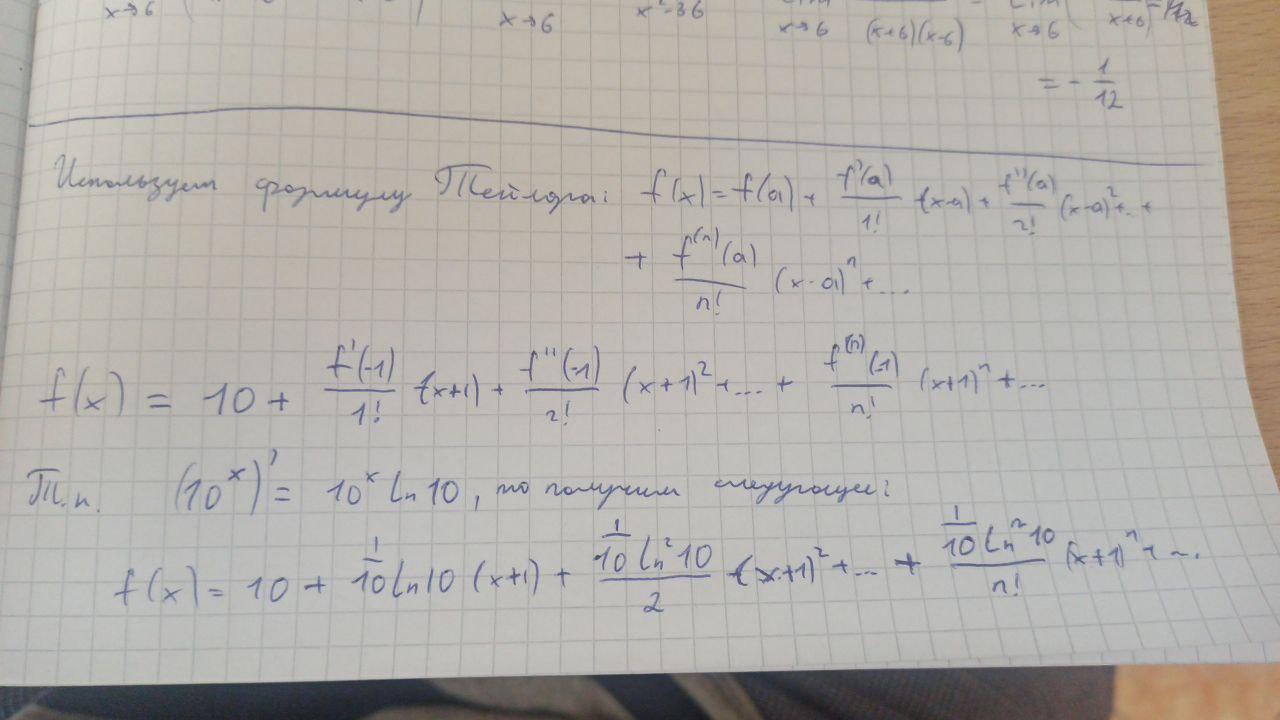 x→6 x→6 x²-36 x→6 (x+6)(x-6) x→6 x+6
= - 1/12
Используем формулу Тейлора: f(x) = f(a) + f'(a)/1! (x-a) + f''(a)/2! (x-a)² + .. +
+ f⁽ⁿ⁾(a)/n! (x-a)ⁿ + ...
f(x) = 10 + f'(-1)/1! (x+1) + f''(-1)/2! (x+1)² + ... + f⁽ⁿ⁾(-1)/n! (x+1)ⁿ + ...
Т.к. (10ˣ)' = 10ˣ ln 10, то получим следующее:
f(x) = 10 + 1/10 ln 10 (x+1) + (1/10 ln² 10)/2 (x+1)² + ... + (1/10 lnⁿ 10)/n! (x+1)ⁿ + ...